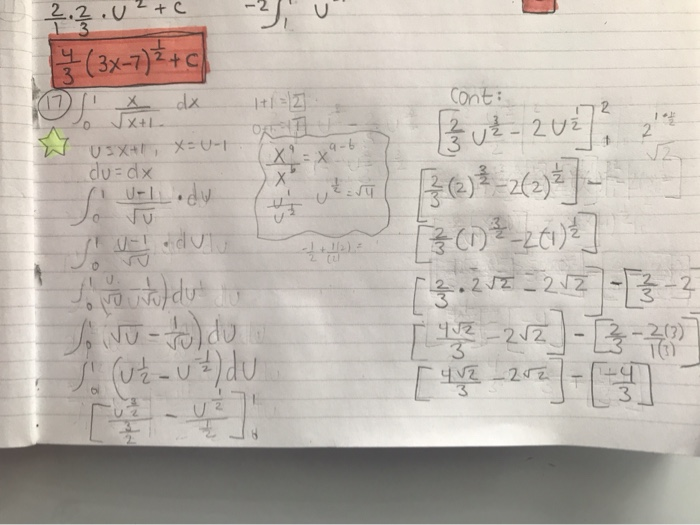 2/1 · 2/3 · U^2 + C
-2∫_1 U
4/3 (3x-7)^{1/2} + C
(17) ∫_0^1 x/√(x+1) dx
1+1=2
U=x+1, x=U-1
du=dx
∫_0^1 (U-1)/√U · du
∫_0^1 (U-1)/√U · du
∫_0^1 (U/√U - 1/√U) du
∫_0^1 (√U - 1/√U) du
∫_0^1 (U^{1/2} - U^{-1/2}) du
[U^{3/2}/(3/2) - U^{1/2}/(1/2)]
x^a/x^b = x^{a-b}
U^1/U^{1/2} U^{1/2} = √U
Cont:
[2/3 U^{3/2} - 2U^{1/2}]_1^2
√2
[2/3 (2)^{3/2} - 2(2)^{1/2}] -
[2/3 (1)^{3/2} - 2(1)^{1/2}]
[2/3 · 2√2 - 2√2] - [2/3 - 2
[4√2/3 - 2√2] - [2/3 - 2(3)/1(3)]
[4√2/3 - 2√2] - [-4/3]